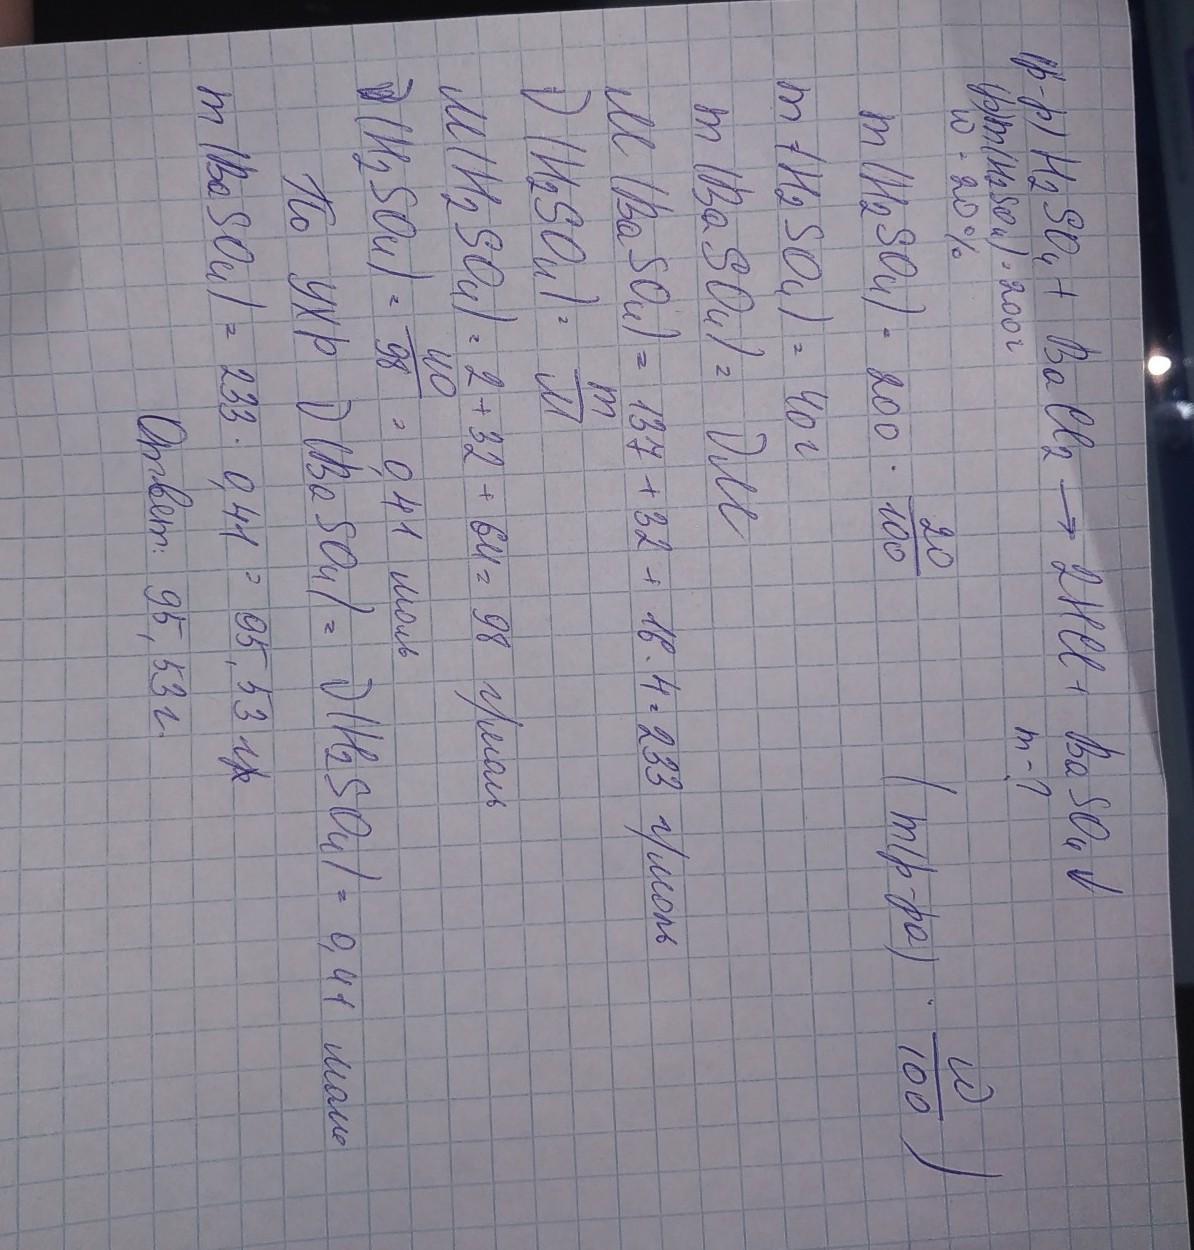 (р-р) H₂SO₄ + BaCl₂ → 2HCl + BaSO₄↓
(р)m(H₂SO₄) = 200г m-?
ω = 20%
m(H₂SO₄) = 200 · 20/100 (m(р-ра) · ω/100)
m(H₂SO₄) = 40г
m(BaSO₄) = νM
M(BaSO₄) = 137 + 32 + 16·4 = 233 г/моль
ν(H₂SO₄) = m/M
M(H₂SO₄) = 2 + 32 + 64 = 98 г/моль
ν(H₂SO₄) = 40/98 = 0,41 моль
По УХР ν(BaSO₄) = ν(H₂SO₄) = 0,41 моль
m(BaSO₄) = 233 · 0,41 = 95,53 гр
Ответ: 95,53г.